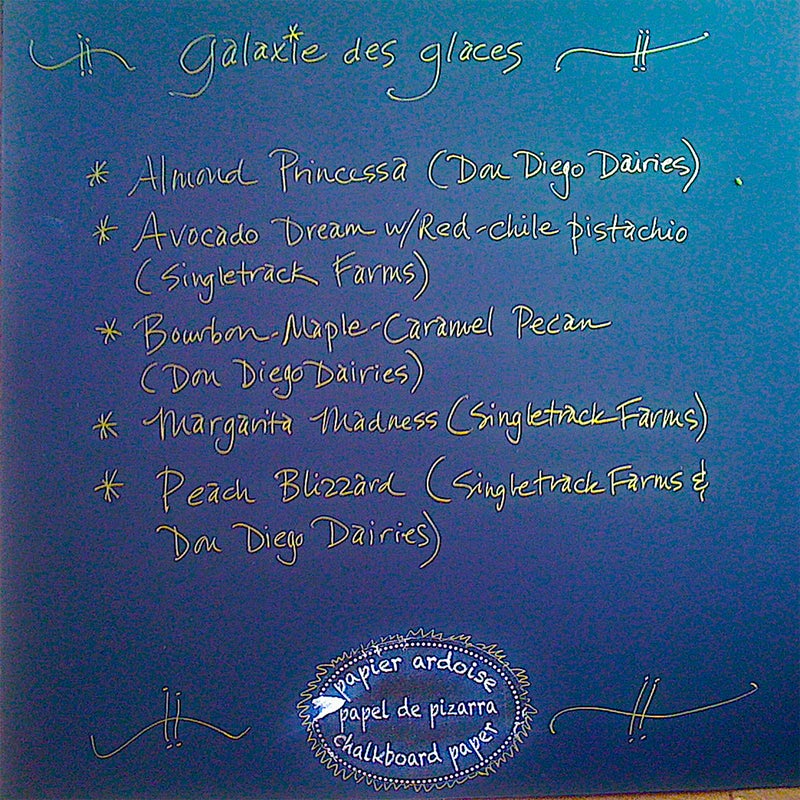 galaxie des glaces
* Almond Princessa (Don Diego Dairies)
* Avocado Dream w/Red-chile pistachio
(Singletrack Farms)
* Bourbon-Maple-Caramel Pecan
(Don Diego Dairies)
* Margarita Madness (Singletrack Farms)
* Peach Blizzard (Singletrack Farms &
Don Diego Dairies)
papier ardoise
papel de pizarra
chalkboard paper